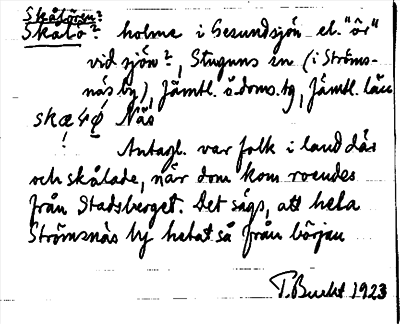 Skålörn?
Skålö? holme i Gesundsjön el. "ör"
vid sjön?, Stuguns sn (i Ströms-
näs by), Jämtl. ö. doms. tg, Jämtl. län
Näs
Antagl. var folk i land där
och skålade, när dom kom roendes
från Stadsberget. Det sägs, att hela
Strömsnäs by hetat så från början
1923